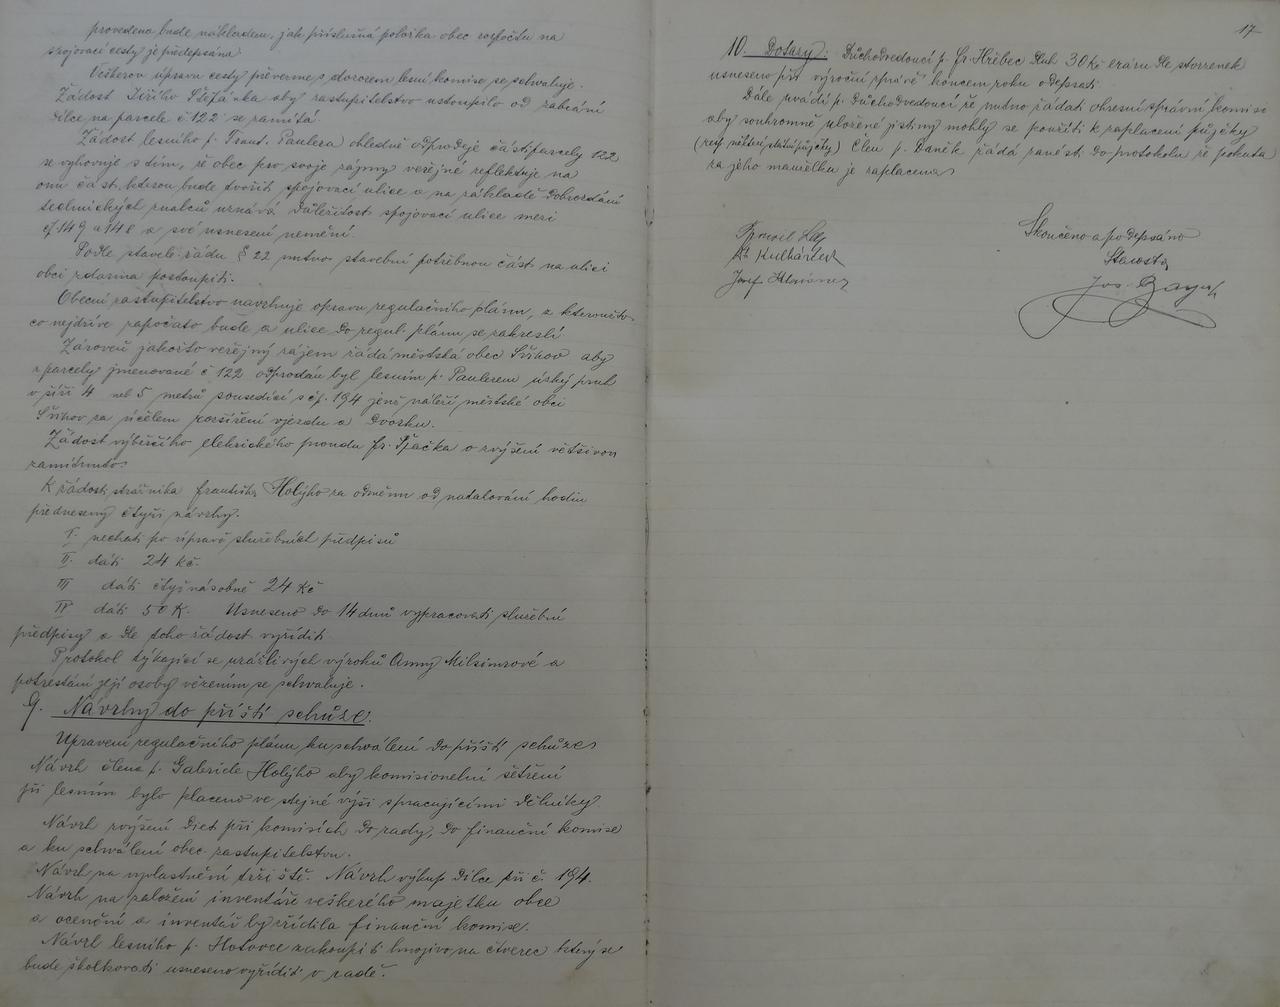 provedena bude nákladem, jak příslušná položka obec. rozpočtu na
spojovací cesty je předepsána.
Veškerou úpravu cesty převezme s dozorem lesní komise, se schvaluje.
Žádost Jiřího Štěpánka aby zastupitelstvo ustoupilo od zabrání
dílce na parcele č 122 se zamítá.
Žádost lesního p. Frant. Paulera ohledně odprodeje části parcely 122
se vyhovuje s tím, že obec pro svoje zájmy veřejné reflektuje na
onu část, kterou bude tvořiti spojovací ulice a na základě dobrozdání
technických znalců uznává důležitost spojovací ulice mezi
čp 149 a 148 a své usnesení nemění.
Podle staveb. řádu § 22 nutno stavební potřebnou část na ulici
obci zdarma postoupiti.
Obecní zastupitelstvo navrhuje opravu regulačního plánu, z kteroužto
co nejdříve započato bude a ulice do regul. plánu se zakreslí
Zároveň jakožto veřejný zájem žádá městská obec Švihov aby
z parcely jmenované č 122 odprodán byl lesním p. Paulerem úzký pruh
v šíři 4 neb 5 metrů sousedící s čp. 194 jenž náleží městské obci
Švihov za účelem rozšíření vjezdu a dvorku.
Žádost výběrčího elektrického proudu Fr. Špačka o zvýšení většinou
zamítnuto.
K žádosti strážníka Františka Holýho za odměnu od natahování hodin
předneseny čtyři návrhy.
I. nechati po úpravě služebních předpisů
II. dáti 24 Kč.
III dáti čtyřnásobně 24 Kč
IV dáti 50 K. Usneseno do 14 dnů vypracovati služební
předpisy a dle toho žádost vyříditi.
Protokol týkající se urážlivých výroků Anny Milsimrové a
potrestání její osoby vězením se schvaluje.
9. Návrhy do příští schůze.
Upravení regulačního plánu ku schválení do příští schůze
Návrh člena p. Gabriele Holýho aby komisionelní šetření
při lesním bylo placeno ve stejné výši s pracujícími dělníky.
Návrh zvýšení diet při komisích do rady, do finanční komise
a ku schválení obec. zastupitelstvu.
Návrh na vyvlastnění tržiště. Návrh výkup dílce při č. 194.
Návrh na založení inventáře veškerého majetku obce
a ocenění a inventář by řídila finanční komise.
Návrh lesního p. Hotovce zakoupiti hnojivo na čtverec který se
bude školkovati usneseno vyříditi v radě.
17
10. Dotazy: Důchodvedoucí p. Fr. Hřebec dluh 30 Kč eráru dle stvrzenek
usneseno při výroční zprávě koncem roku odepsati.
Dále uvádí p. důchodvedoucí že nutno žádati okresní správní komisi
aby souhrnně uložené jistiny mohly se použíti k zaplacení půjčky
(resp. některé, státní půjčky) Člen p. Daněk žádá zanésti do protokolu že pokuta
za jeho manželku je zaplacena
Skončeno a podepsáno
Starosta
Josef
Jos.